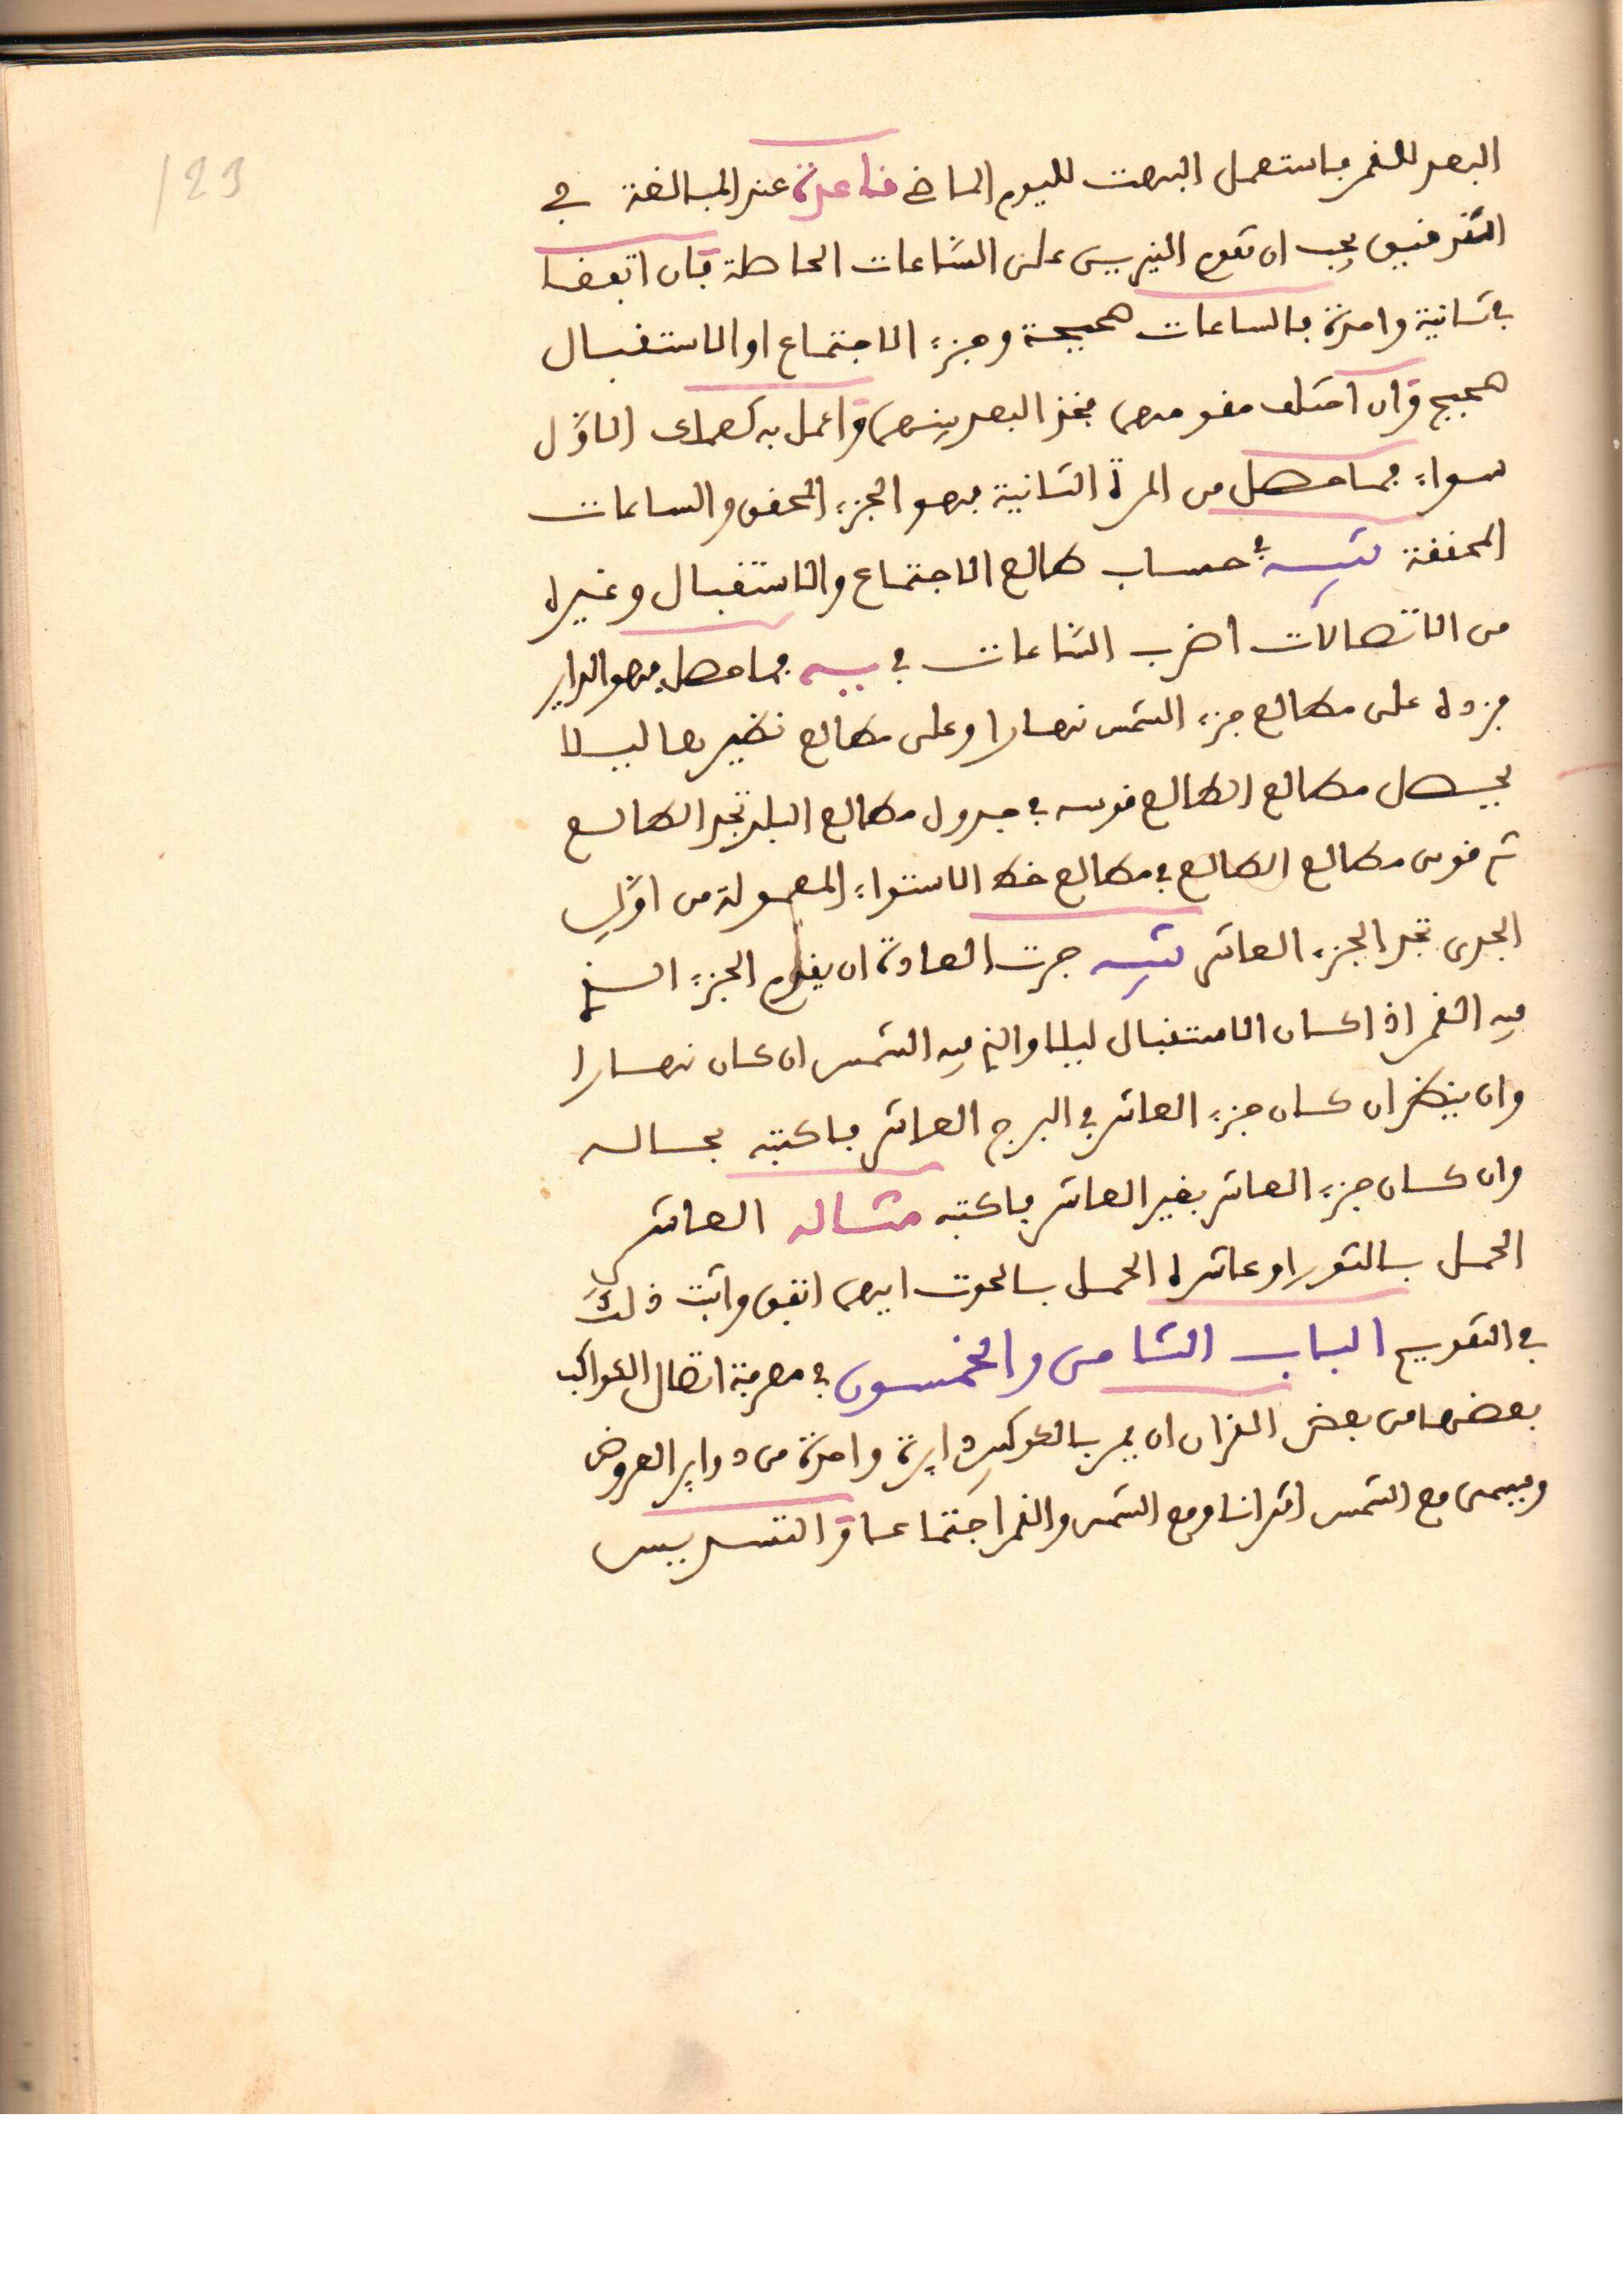 123
البعد للقمر فاستعمل البهت لليوم الماضي قاعدة عند المبالغة في
التدقيق يجب ان تقوم النيرين على الساعات الحاصلة فان اتفقا
في ثانية واحدة فالساعات صحيحة وجزء الاجتماع او الاستقبال
صحيح وان اختلف مقومهما فخذ البعد بينهما واعمل به كعملك الاول
سواء فما حصل من المرة الثانية فهو الجزء المحقق والساعات
المحققة تنبيه في حساب طالع الاجتماع والاستقبال وغيره
من الاتصالات اضرب الساعات في يه فما حصل فهو الداير
فزده على مطالع جزء الشمس نهارا وعلى مطالع نظيرها ليلا
يحصل مطالع الطالع قوسه في جدول مطالع البلد تجد الطالع
ثم قوس مطالع الطالع في مطالع خط الاستواء المعمولة من اول
الجدي تجد الجزء العاشر تنبيه جرت العادة ان يقدم الجزء الذي
فيه القمر اذا كان الاستقبال ليلا والذي فيه الشمس ان كان نهارا
وان ينظر ان كان جزء العاشر في البرج العاشر فاكتبه بحاله
وان كان جزء العاشر بغير العاشر فاكتبه مثاله العاشر
الحمل بالثور او عاشره الحمل بالحوت ايهما اتفق واثبت ذلك
في التقويم الباب الثامن والخمسون في معرفة اتصال الكواكب
بعضها من بعض القران ان يمر بالكوكبين دايرة واحدة من دواير العروض
ويسمى مع الشمس اقترانا ومع الشمس والقمر اجتماعا والتسديس